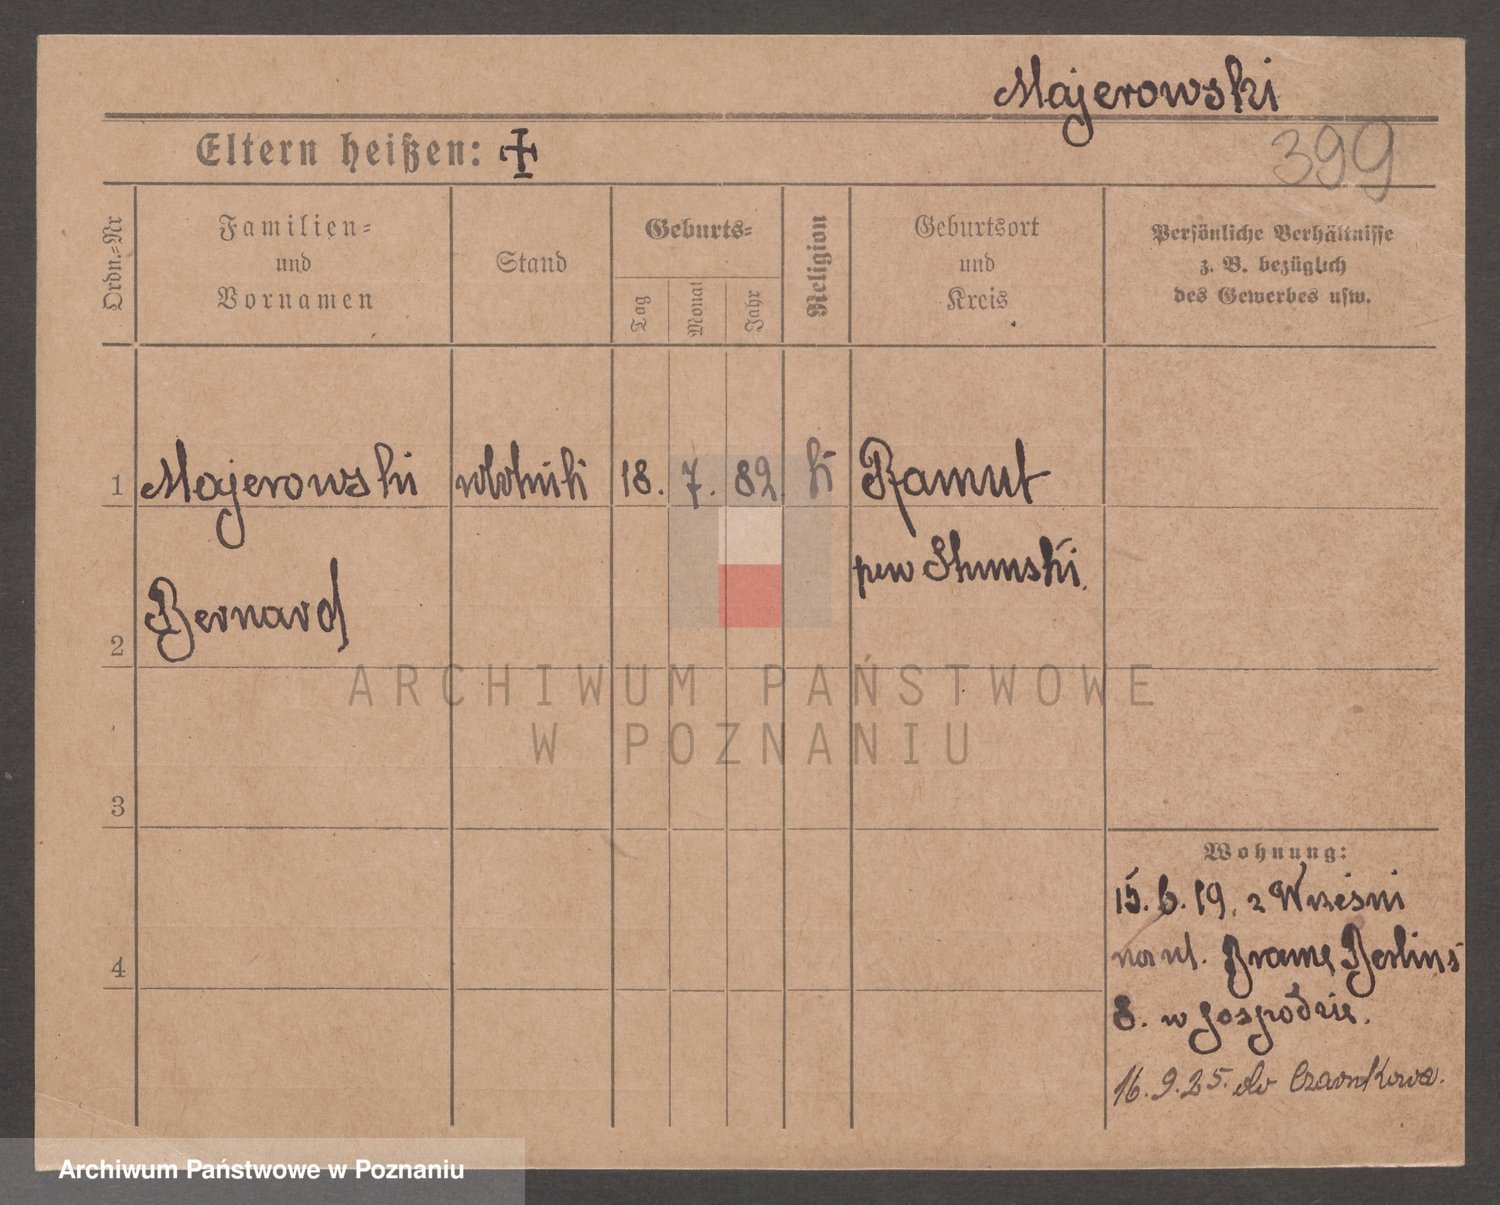 Majerowski
399
Eltern heißen: ┼
Ordn.-Nr
Familien- und Vornamen
Stand
Geburts-
Tag
Monat
Jahr
Religion
Geburtsort und Kreis
Persönliche Verhältnisse
z. B. bezüglich
des Gewerbes usw.
1 Majerowski robotnik 18. 7. 82 k Ramut
pow Sztumski.
Bernard
2
3
4
Wohnung:
15. 6. 19. z Wrześni
na ul. Bramę Berlińs
8. w gospodzie.
16. 9. 25. do Czarnkowa.
ARCHIWUM PAŃSTWOWE
W POZNANIU
Archiwum Państwowe w Poznaniu